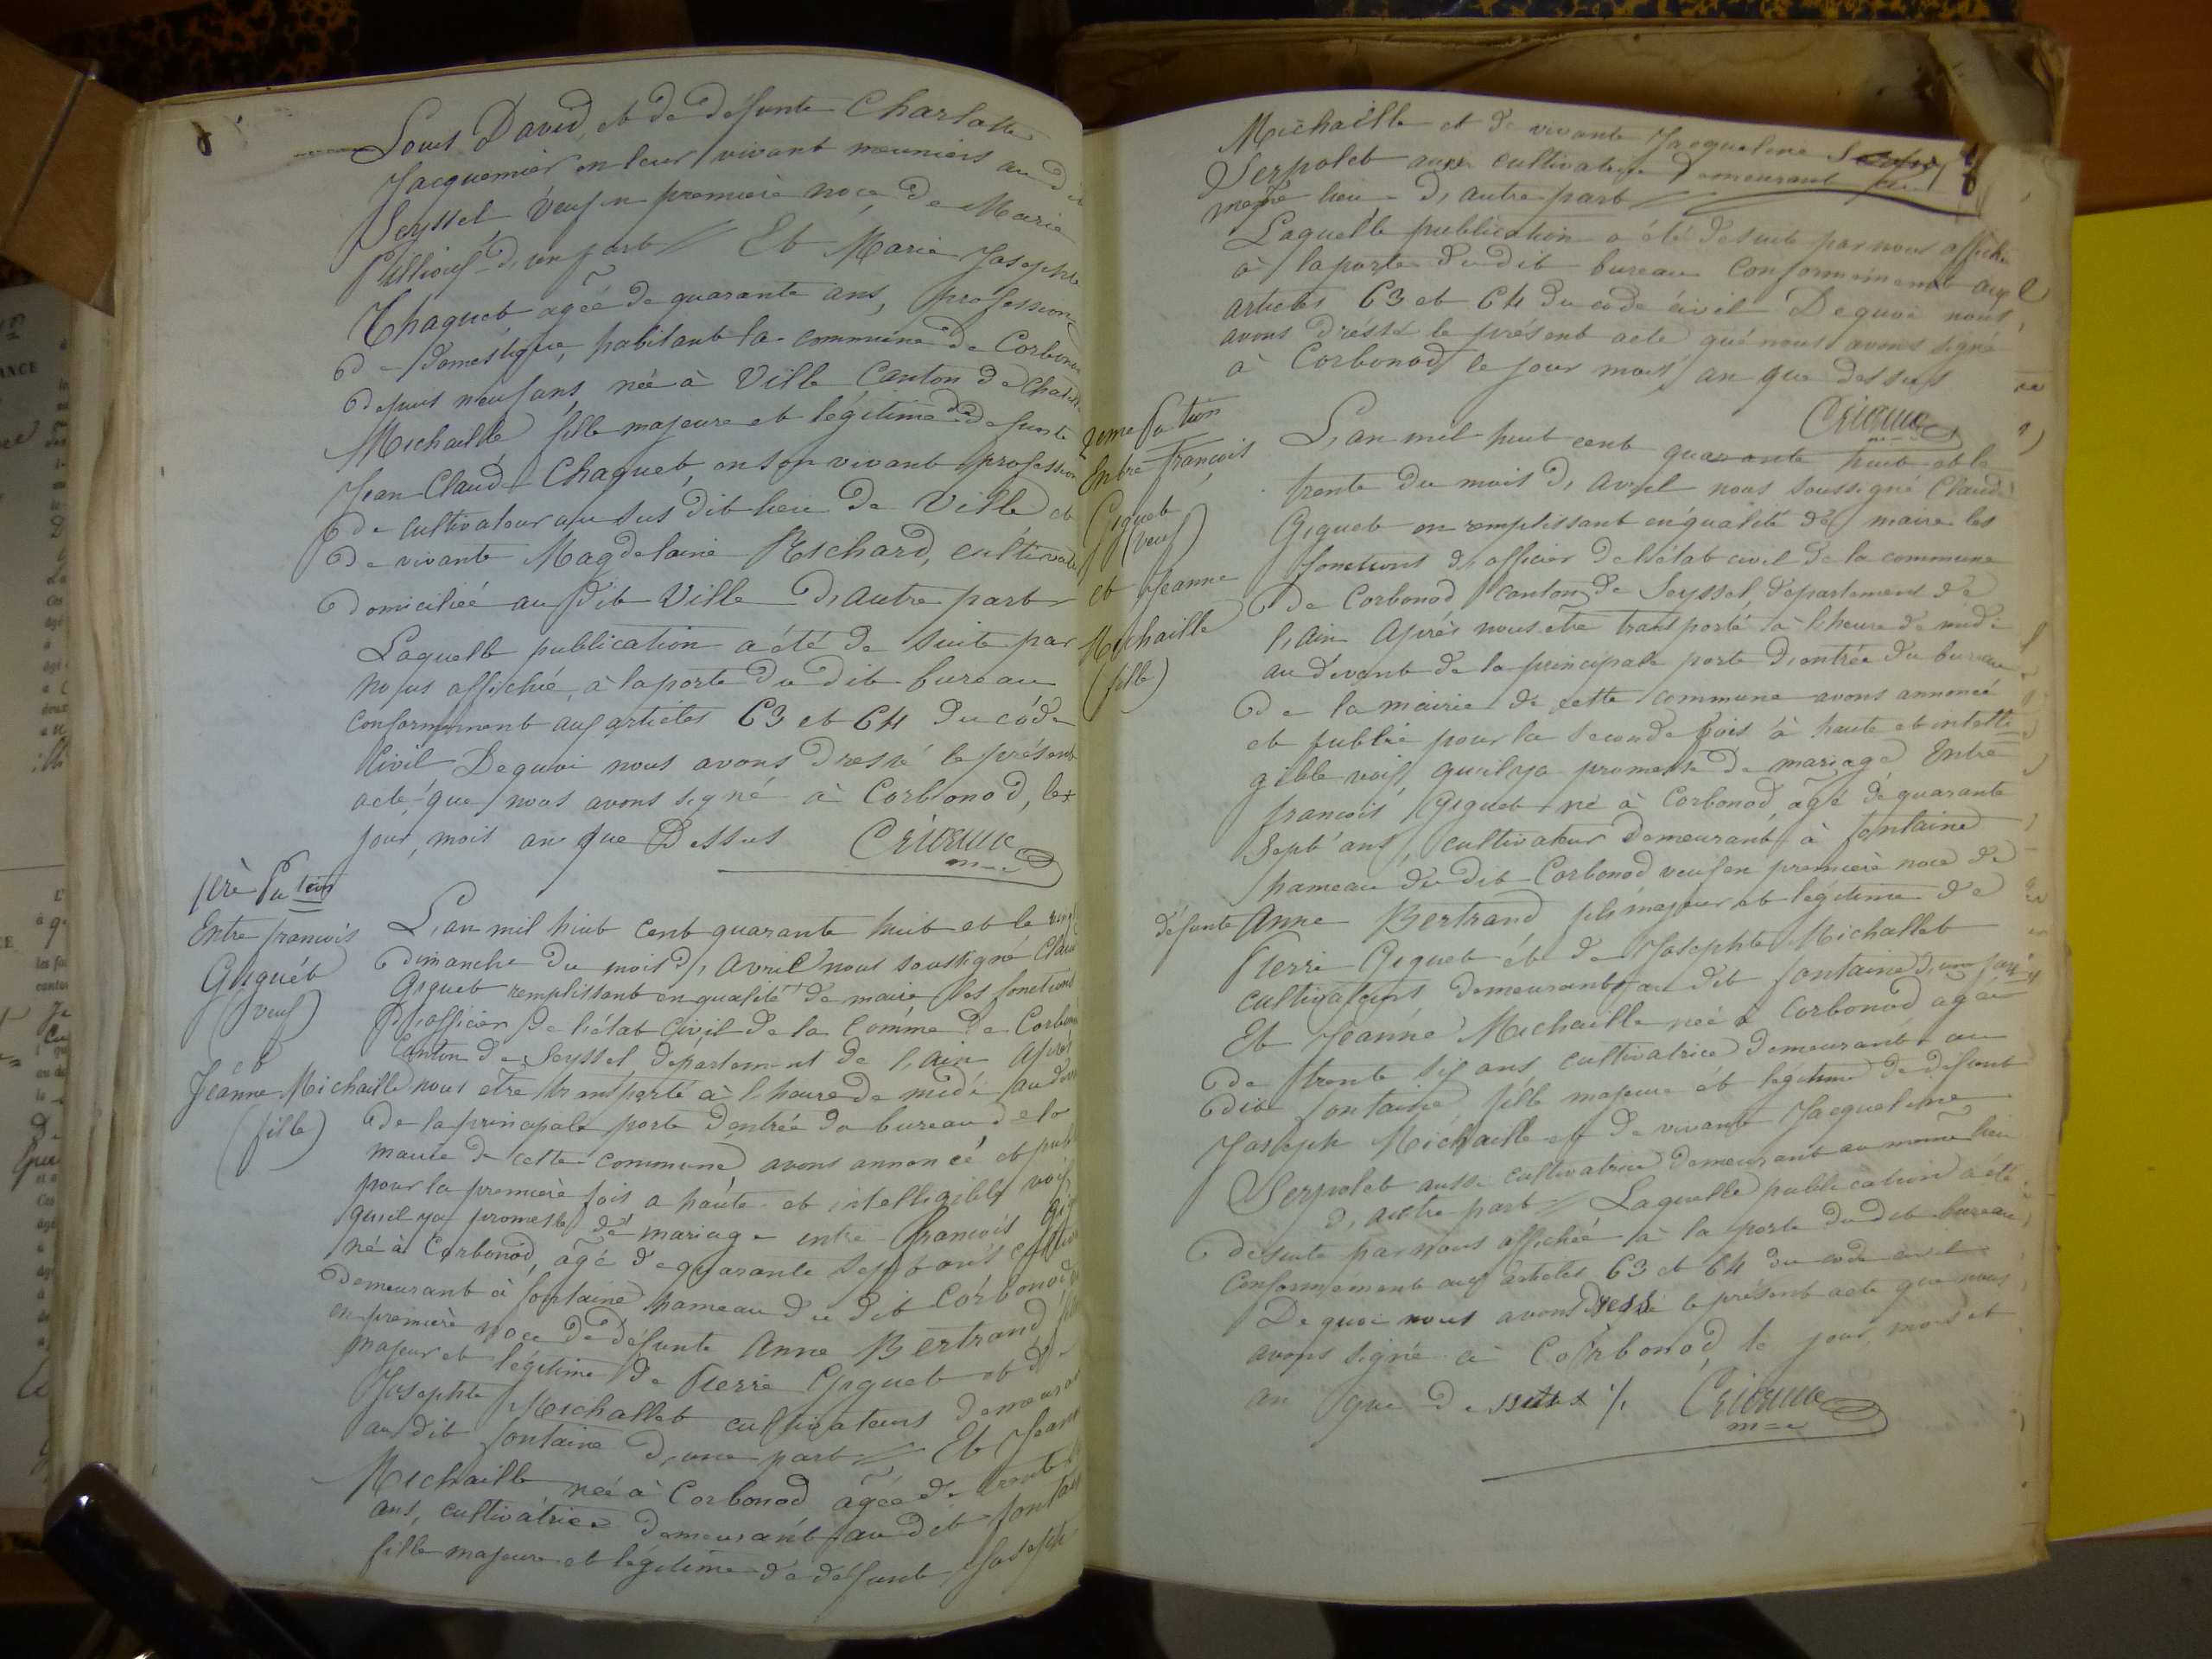 Louis David, et de defunte Charlotte
Jacquemier en leur vivant meuniers au dit
Seyssel, veuf en première noce de Marie
d'un part // Et Marie Josephte
Chaquet agée de quarante ans, profession
de domestique, habitant la commune de Corbonod
depuis neuf ans, née à Ville Canton de Chatillon
Michaille fille majeure et légitime de defunt
Jean Claude Chaquet, en son vivant profession
de cultivateur au sus dit lieu de Ville et
de vivante Magdelaine Richard, cultivatrice
domiciliée au dit Ville d'autre part
Laquelle publication a été de suite par
nous affichée, à la porte du dit bureau
conformément aux articles 63 et 64 du code
Civil De quoi nous avons dressé le présent
acte que nous avons signé à Corbonod, le
jour, mois an que Dessus
1ère Pution
Entre francois
Giguet
(veuf)
et
Jeanne Michaille
(fille)
L'an mil huit cent quarante huit et le
dimanche du mois d'avril nous soussigné Claude
Giguet remplissant en qualité de maire les fonctions
d'officier de l'état Civil de la Comme de Corbonod
Canton de Seyssel, departement de l'ain Après
nous être transporté à l'heure de midi au devant
de la principale porte d'entrée du bureau de la
mairie de cette commune avons annoncé et publié
pour la première fois a haute et intelligible voix,
qu'il ya promesse de mariage entre francois Giguet
né à Corbonod, agé de quarante sept ans cultivateur
demeurant à fontaine hameau du dit Corbonod veuf
en première noce de défunte Anne Bertrand fils
majeur et légitime de Pierre Giguet et de
Josephte Michallet cultivateurs demeurant
au dit fontaine d'une part // Et Jeanne
Michaille née à Corbonod agée de trente six
ans, cultivatrice demeurant au dit fontaine
fille majeure et légitime de défunt Joseph
Michaille et de vivante Jacqueline
Serpolet aussi cultivatrice demeurant au
même lieu d'autre part //
Laquelle publication a été de suite par nous affichée
à la porte du dit bureau Conformément aux
articles 63 et 64 du code civil De quoi nous
avons dressé le présent acte que nous avons signé
à Corbonod le jour mois an que dessus
2eme Pution
Entre françois
Giguet
(veuf)
et Jeanne
Michaille
(fille)
L'an mil huit cent quarante huit et le
trente du mois d'avril nous soussigné Claude
Giguet en remplissant en qualité de maire les
fonctions d'officier de l'état civil de la commune
de Corbonod canton de Seyssel departement de
l'ain Après nous être transporté à l'heure de midi
au devant de la principale porte d'entrée du bureau
de la mairie de cette commune avons annoncé
et publié pour la seconde fois à haute et intelli
gible voix, qu'il ya promesse de mariage Entre
francois Giguet né à Corbonod, agé de quarante
sept ans, cultivateur demeurant à fontaine
hameau du dit Corbonod veuf en première noce de
défunte Anne Bertrand fils majeur et légitime de
Pierre Giguet et de Josephte Michallet
cultivateurs demeurants au dit fontaine d'un part
Et Jeanne Michaille née à Corbonod agée
de trente six ans cultivatrice demeurant au
dit fontaine, fille majeure et légitime de défunt
Joseph Michaille et de vivante Jacqueline
Serpolet aussi cultivatrice demeurant au même lieu
d'autre part // Laquelle publication a été
de suite par nous affichée à la porte du dit bureau
Conformement aux articles 63 et 64 du code civil
De quoi nous avons dressé le présent acte que nous
avons signé à Corbonod le jour, mois et
an que dessus